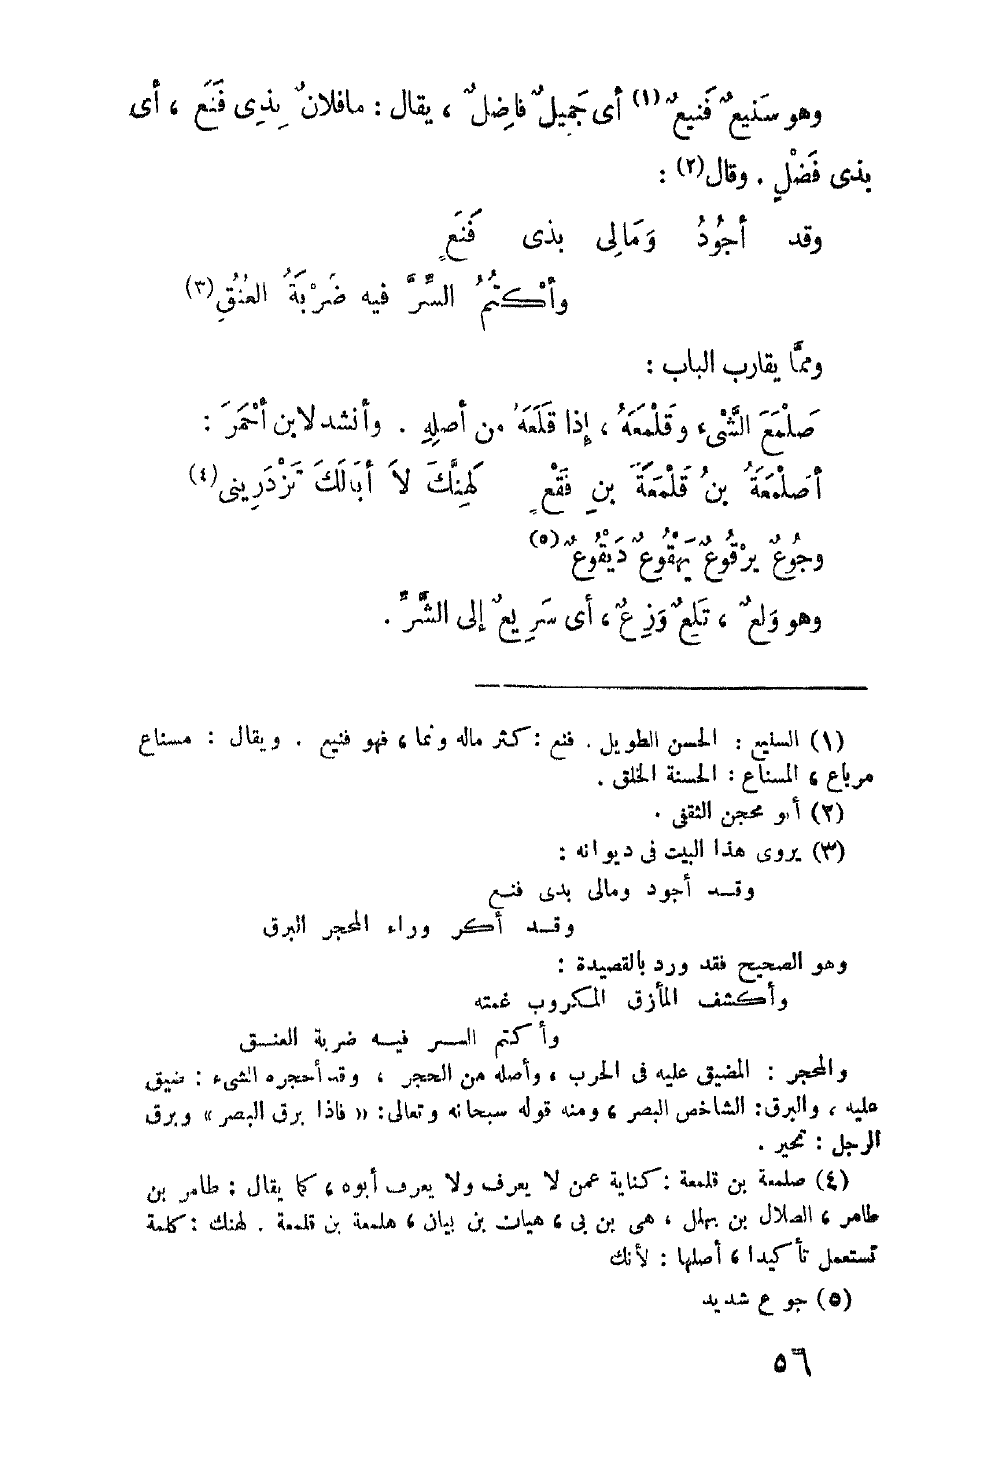 وهو سَنيعٌ فَنيعٌ (١) أى جَمِيلٌ فاضِلٌ ، يقال : مافلانٌ بِذِى فَنَع ، أى
بذى فَضْلٍ . وقال (٢) :
وقد أجُودُ وَمَالِى بذى فَنَعٍ
وأكْتُمُ السِّرَّ فيه ضَرْبَةُ العُنُقِ (٣)
وممَّا يقارب الباب :
صَلْمَعَ الشَّىْء وقَلْمَعَهُ ، إِذا قَلَعَهُ من أصلِهِ . وأنشد لابن أحْمَرَ :
أصَلْمَعَةُ بنُ قَلْمَعَةَ بنِ فَقْعٍ لَهِنَّكَ لاَ أبَالَكَ تَزْدَرِينى (٤)
وجُوعٌ يرْقُوعٌ يَهْقُوعٌ دَيْقُوعٌ (٥)
وهو وَلعٌ ، تَلِعٌ وَزِعٌ ، أى سَرِيعٌ إلى الشَّرِّ .
(١) السنيع : الحسن الطويل . فنع : كثر ماله ونما ، فهو فنيع . ويقال : مسناع
مرباع ، المسناع : الحسنة الخلق .
(٢) أبو محجن الثقفى .
(٣) يروى هذا البيت فى ديوانه :
وقد أجود ومالى بذى فنع
وقد أكر وراء المحجر البرق
وهو الصحيح فقد ورد بالقصيدة :
وأكشف المأزق المكروب غمته
وأكتم السر فيه ضربة العنق
والمحجر : المضيق عليه فى الحرب ، وأصله من الحجر ، وقد أحجره الشىء : ضيق
عليه ، والبرق : الشاخص البصر ، ومنه قوله سبحانه وتعالى : « فاذا برق البصر » وبرق
الرجل : تحير .
(٤) صلمعة بن قلمعة : كناية عمن لا يعرف ولا يعرف أبوه ، كما يقال : طامر بن
طامر ، الضلال بن بهلل ، هى بن بى ، هيان بن بيان ، هلمعة بن قلمعة . لهنك : كلمة
تستعمل تأكيدا ، أصلها : لأنك
(٥) جوع شديد
٥٦